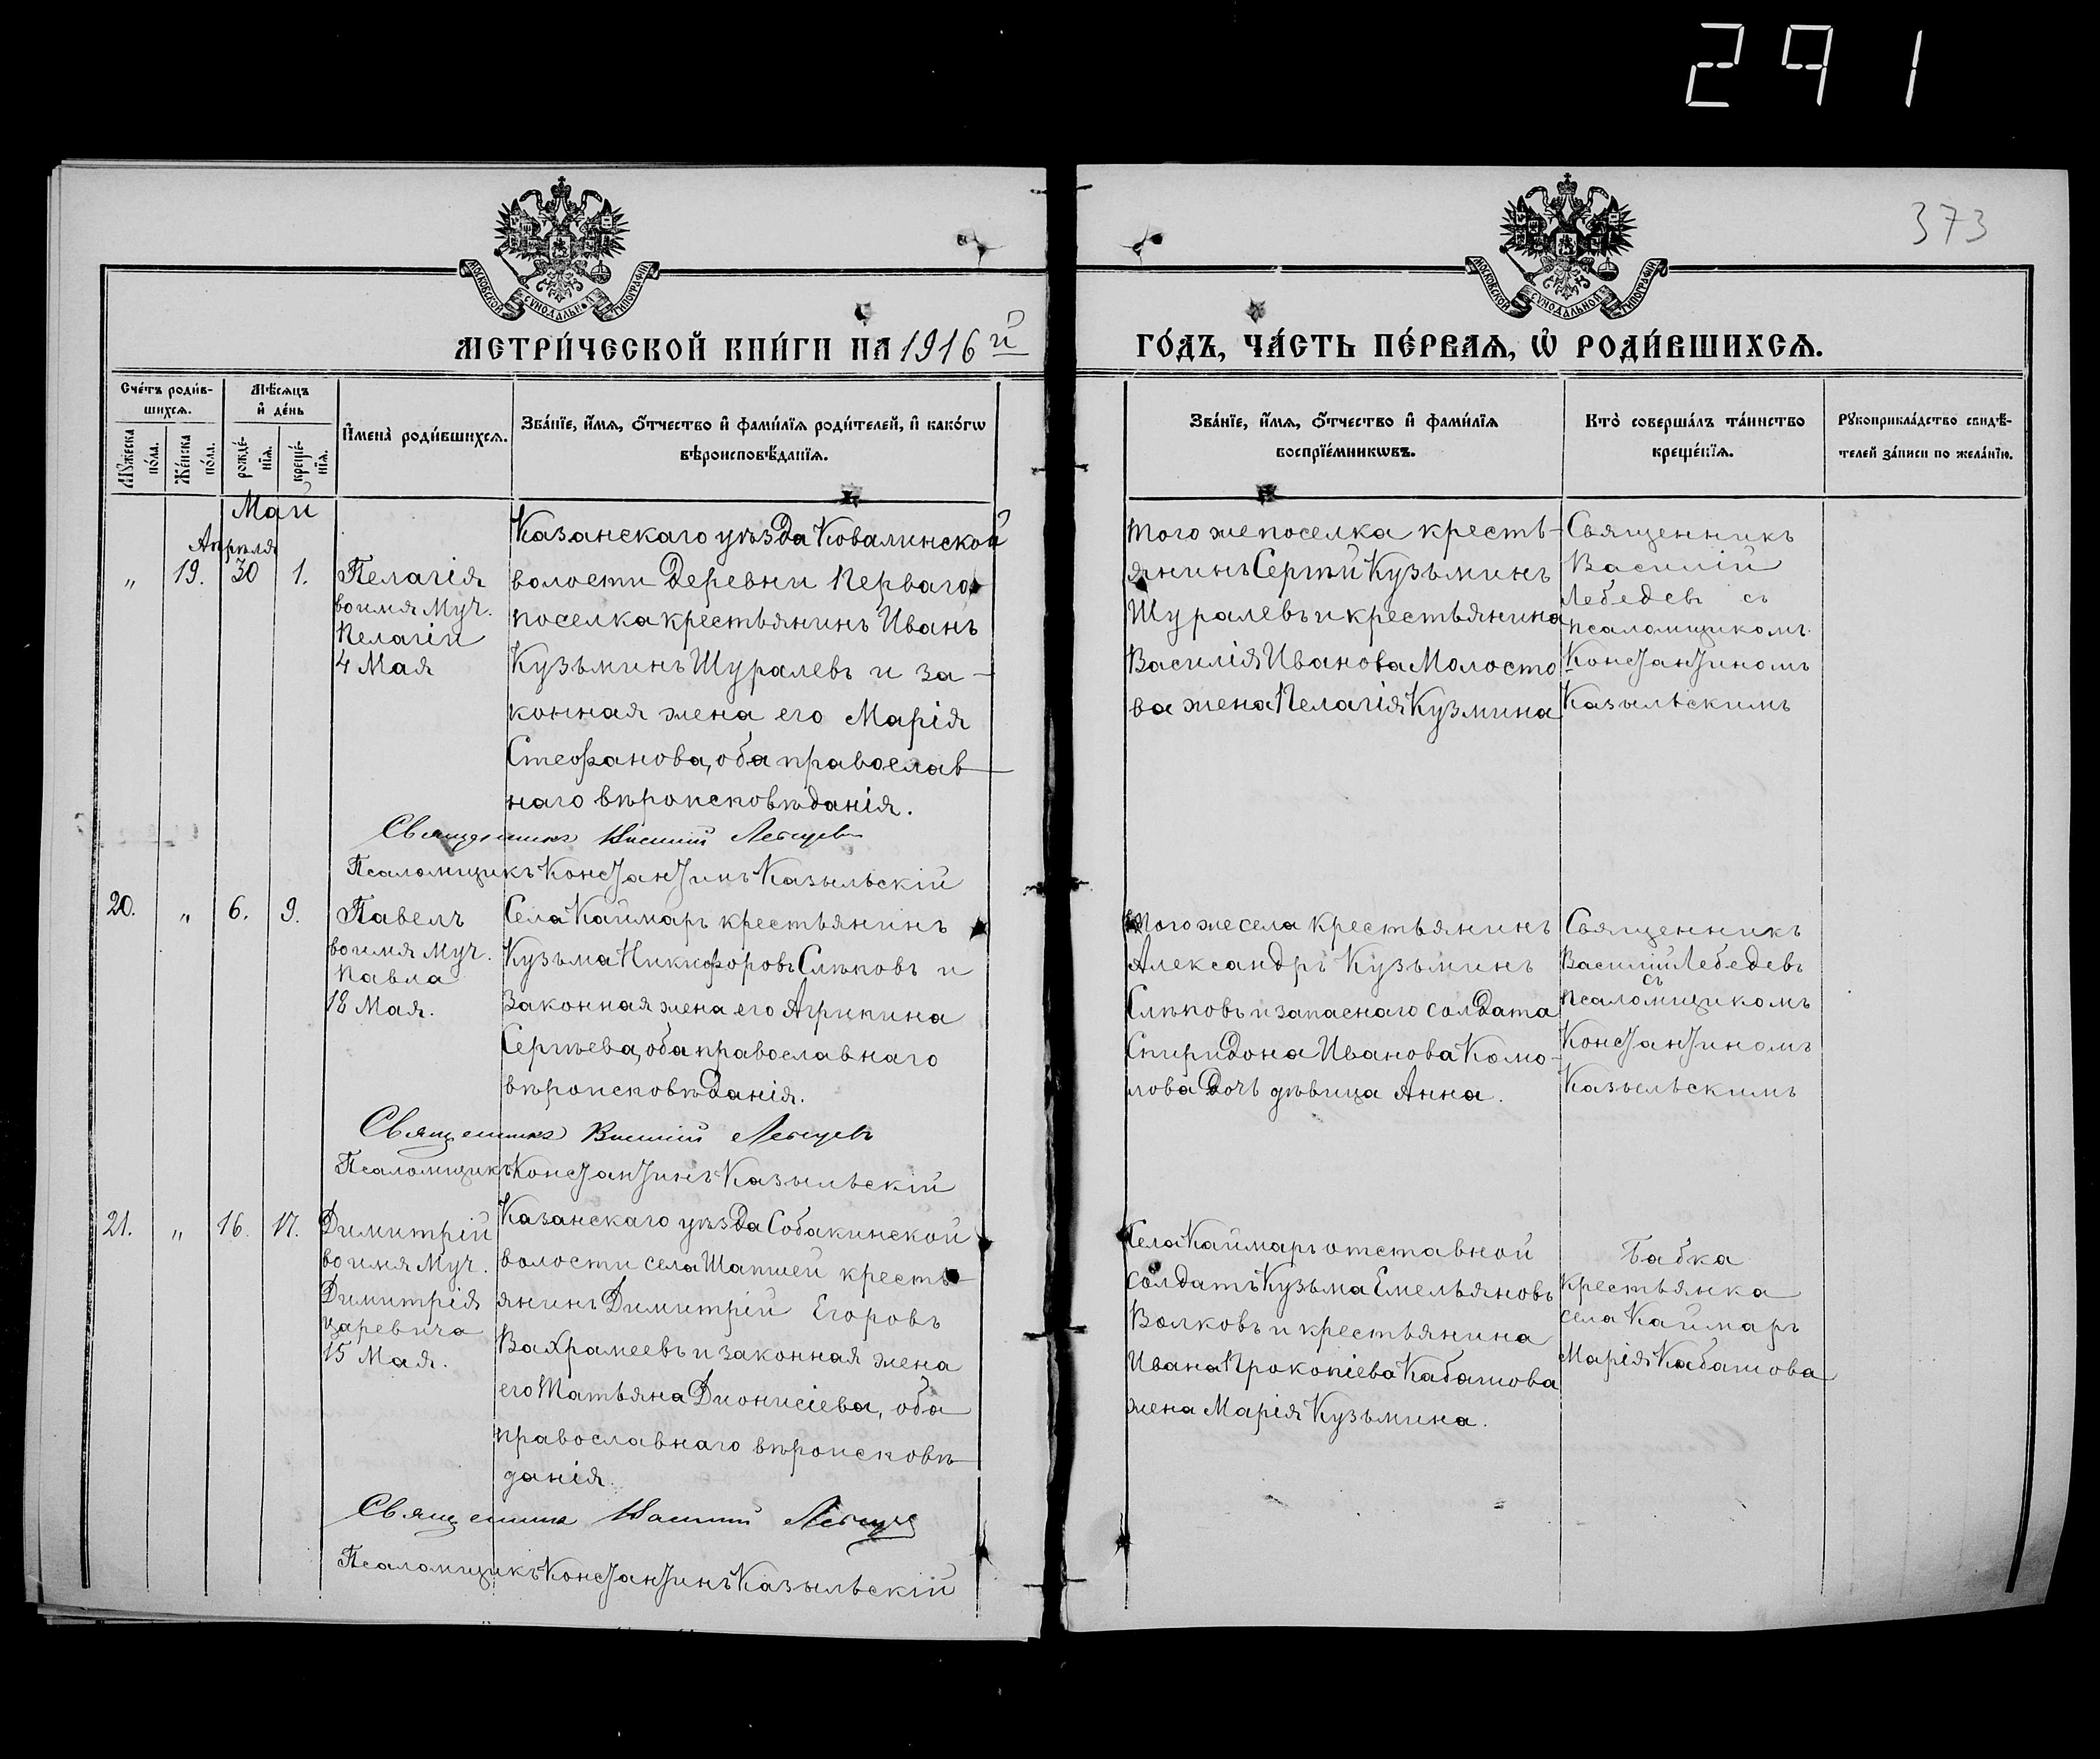 291
373
МОСКОВСКОЙ СѴНОДАЛЬНОЙ ТИПОГРАФІИ
МОСКОВСКОЙ СѴНОДАЛЬНОЙ ТИПОГРАФІИ
МЕТРИ́ЧЕСКОЙ КНИ́ГИ НА 1916 й
ГО́ДЪ, ЧА́СТЬ ПЕ́РВАЯ, Ѡ҆ РОДИ́ВШИХСЯ.
Сче́тъ роди́в-
шихся.
Мѣ́сяцъ
и҆ де́нь
Му́жеска по́ла.
Же́нска по́ла.
рожде́-нїя.
креще́-нїя.
И҆мена̀ роди́вшихся.
Зва́нїе, и҆́мя, ѻ҆́тчество и҆ фами́лїя роди́телей, и҆ како́гѡ
вѣроисповѣ́данїя.
Зва́нїе, и҆́мя, ѻ҆́тчество и҆ фами́лїя
воспрїе́мникѡвъ.
Кто̀ соверша́лъ та́инство
креще́нїя.
Рꙋкоприкла́дство свидѣ́-
телей за́писи по жела́нїю.
Май
Апрѣля
„ 19. 30 1.
Пелагія
во имя Муч.
Пелагіи
4 Мая
Казанскаго уѣзда Ковалинской
волости деревни Перваго
поселка крестьянинъ Иванъ
Кузьминъ Шуралевъ и за-
конная жена его Марія
Стефанова, оба православ-
наго вѣроисповѣданія.
Священникъ Василій Лебедевъ
Псаломщикъ Константинъ Казыльскій
того же поселка кресть-
янинъ Сергѣй Кузьминъ
Шуралевъ и крестьянина
Василія Иванова Молосто
ва жена Пелагія Кузмина
Священникъ
Василій
Лебедевъ съ
псаломщикомъ
Константиномъ
Казыльскимъ
20. „ 6. 9.
Павелъ
во имя Муч.
Павла
18 Мая.
Села Каймаръ крестьянинъ
Кузьма Никифоровъ Слѣповъ и
законная жена его Агрипина
Сергѣева, оба православнаго
вѣроисповѣданія.
Священникъ Василій Лебедевъ
Псаломщикъ Константинъ Казыльскій
того же села крестьянинъ
Александръ Кузьминъ
Слѣповъ и запаснаго солдата
Спиридона Иванова Комо-
лова дочь дѣвица Анна.
Священникъ
Василій Лебедевъ
съ
псаломщикомъ
Константиномъ
Казыльскимъ
21. „ 16. 17.
Димитрій
во имя Муч.
Димитрія
царевича
15 Мая.
Казанскаго уѣзда Собакинской
волости села Шапшей кресть-
янинъ Димитрій Егоровъ
Вахрамеевъ и законная жена
его Татьяна Дионисіева, оба
православнаго вѣроисповѣ-
данія.
Священникъ Василій Лебедевъ
Псаломщикъ Константинъ Казыльскій
Села Каймаръ отставной
солдатъ Кузьма Емельяновъ
Волковъ и крестьянина
Ивана Прокопіева Кабашова
жена Марія Кузьмина.
Бабка
крестьянка
села Каймаръ
Марія Кабашова